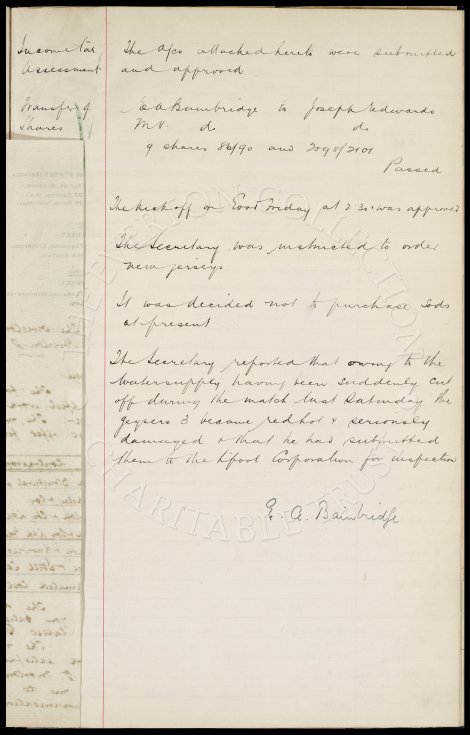 Income tax The a/cs attached hereto were submitted
Assessment and approved
Transfer of E A Bainbridge to Joseph Edwards
Shares do do
9 shares 86/90 and 2098/2101
Passed
The kick off on Good Friday at 2.30 was approved
The Secretary was instructed to order
new jerseys
It was decided not to purchase Sods
at present
The Secretary reported that owing to the
Watersupply having been suddenly cut
off during the match last Saturday the
geysers 3 became redhot & seriously
damaged & that he had submitted
them to the Lpool Corporation for inspection
E. A. Bainbridge
THE EVERTON COLLECTION
CHARITABLE TRUST